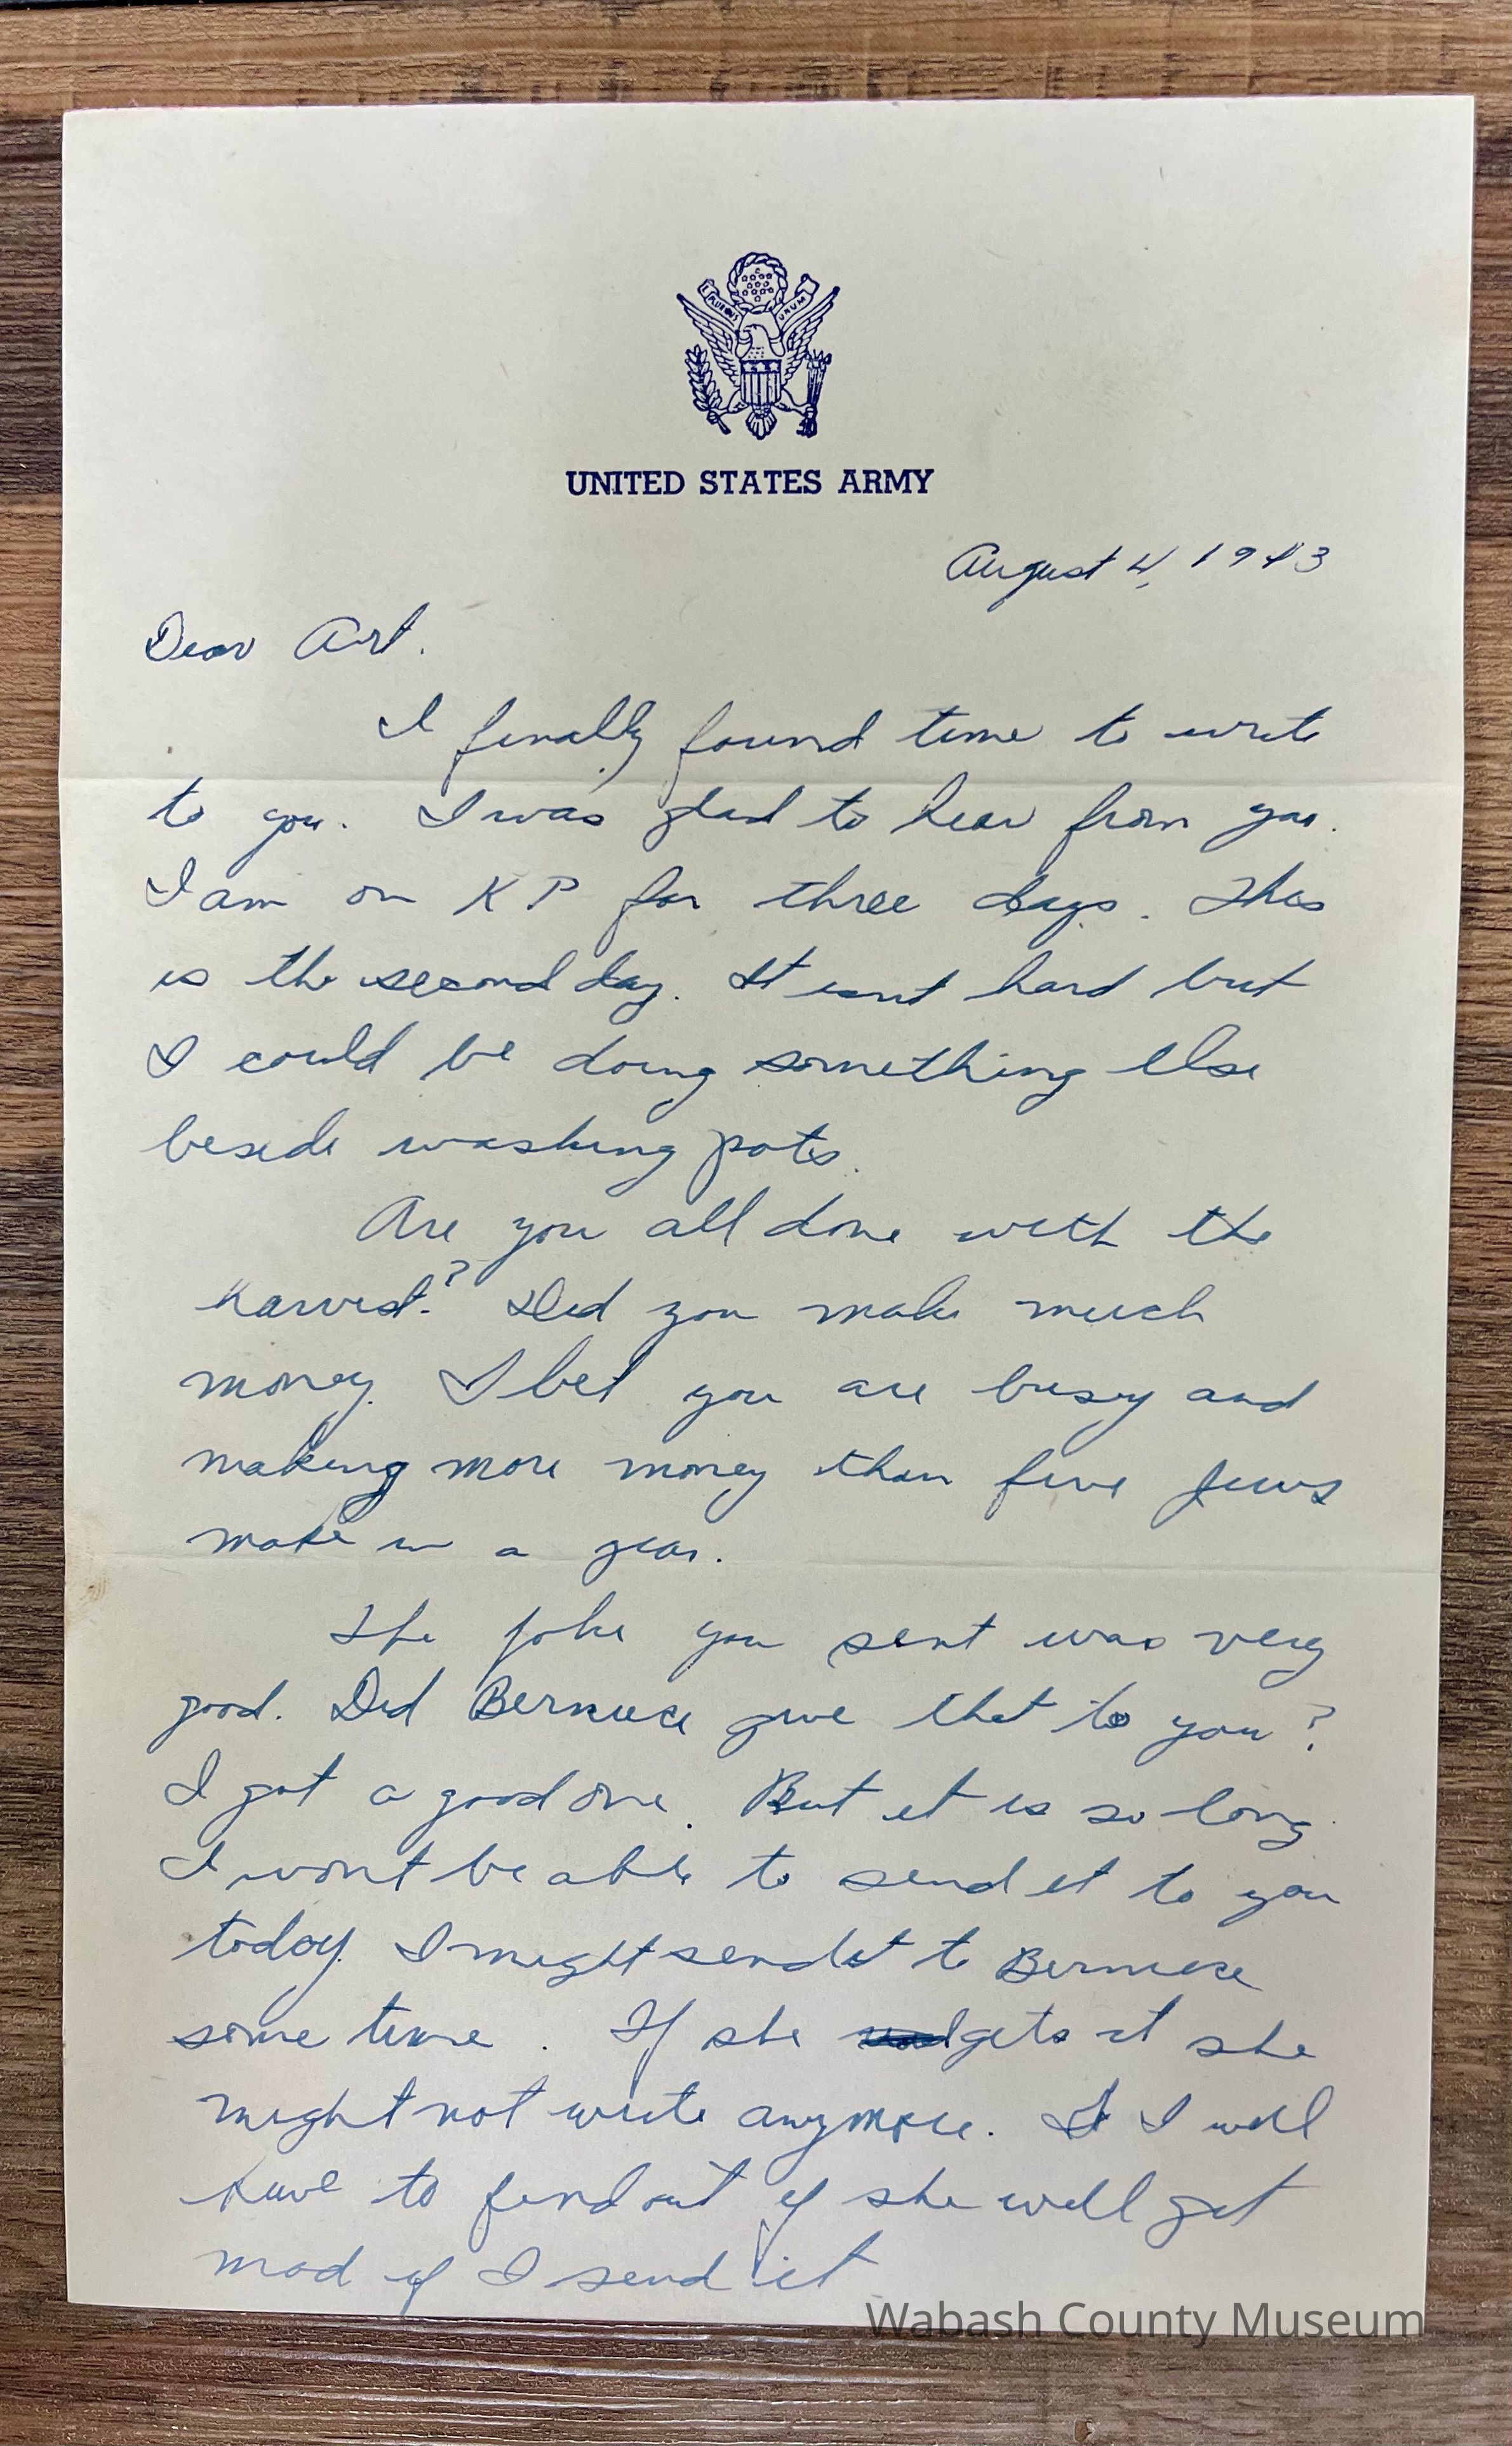 E PLURIBUS UNUM
UNITED STATES ARMY
August 4, 1943
Dear Art.
I finally found time to write
to you. I was glad to hear from you.
I am on KP for three days. This
is the second day. It isnt hard but
I could be doing something else
beside washing pots.
Are you all done with the
harvest? Did you make much
money. I bet you are busy and
making more money than five Jews
make in a year.
The joke you sent was very
good. Did Berniece give that to you?
I got a good one. But it is so long
I wont be able to send it to you
today. I might send it to Berniece
some time. If she gets it she
might not write anymore. I will
have to find out if she will get
mad if I send it
Wabash County Museum